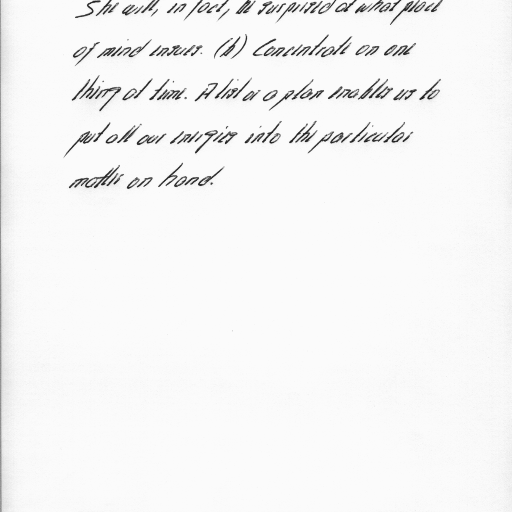 She will, in fact, be surprised at what peace
of mind ensues. (h) Concentrate on one
thing at time. A list or a plan enables us to
put all our energies into the particular
matter on hand.